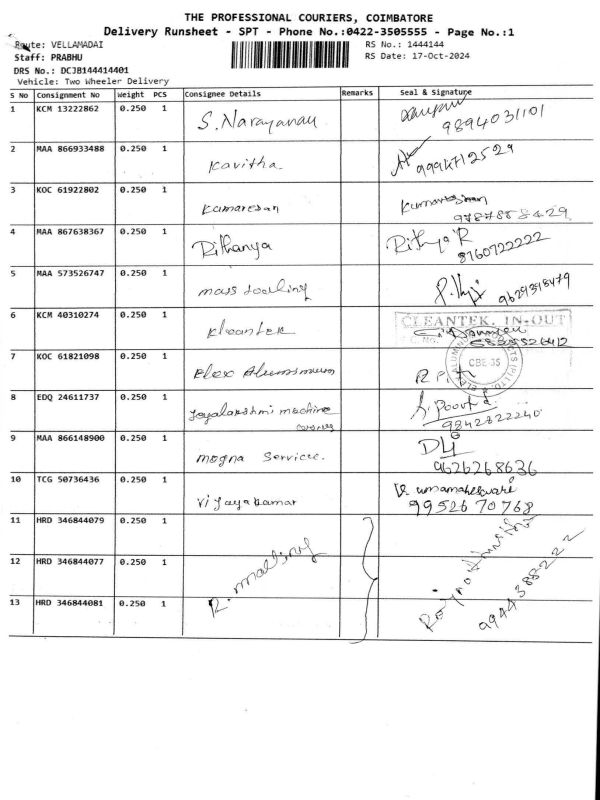 THE PROFESSIONAL COURIERS, COIMBATORE
Delivery Runsheet - SPT - Phone No.:0422-3505555 - Page No.:1
Route: VELLAMADAI
RS No.: 1444144
Staff: PRABHU
RS Date: 17-Oct-2024
DRS No.: DCJB144414401
Vehicle: Two Wheeler Delivery
S No Consignment No Weight PCS Consignee Details Remarks Seal & Signature
1 KCM 13222862 0.250 1 S. Narayanan
9894031101
2 MAA 866933488 0.250 1 Kavitha.
3 KOC 61922802 0.250 1 Kumaresan Kumaresan
9787858429
4 MAA 867638367 0.250 1 Rithanya Rithya R
8760722222
5 MAA 573526747 0.250 1 mass
9629318479
6 KCM 40310274 0.250 1
CLEANTEK, IN-OUT
7 KOC 61821098 0.250 1
CBE-35
8 EDQ 24611737 0.250 1 Jayalakshmi machine
9842822240
9 MAA 866148900 0.250 1 mogna Service.
9626268636
10 TCG 50736436 0.250 1 Vijayakumar umamaheswari
9952670768
11 HRD 346844079 0.250 1
12 HRD 346844077 0.250 1
9944388222
13 HRD 346844081 0.250 1